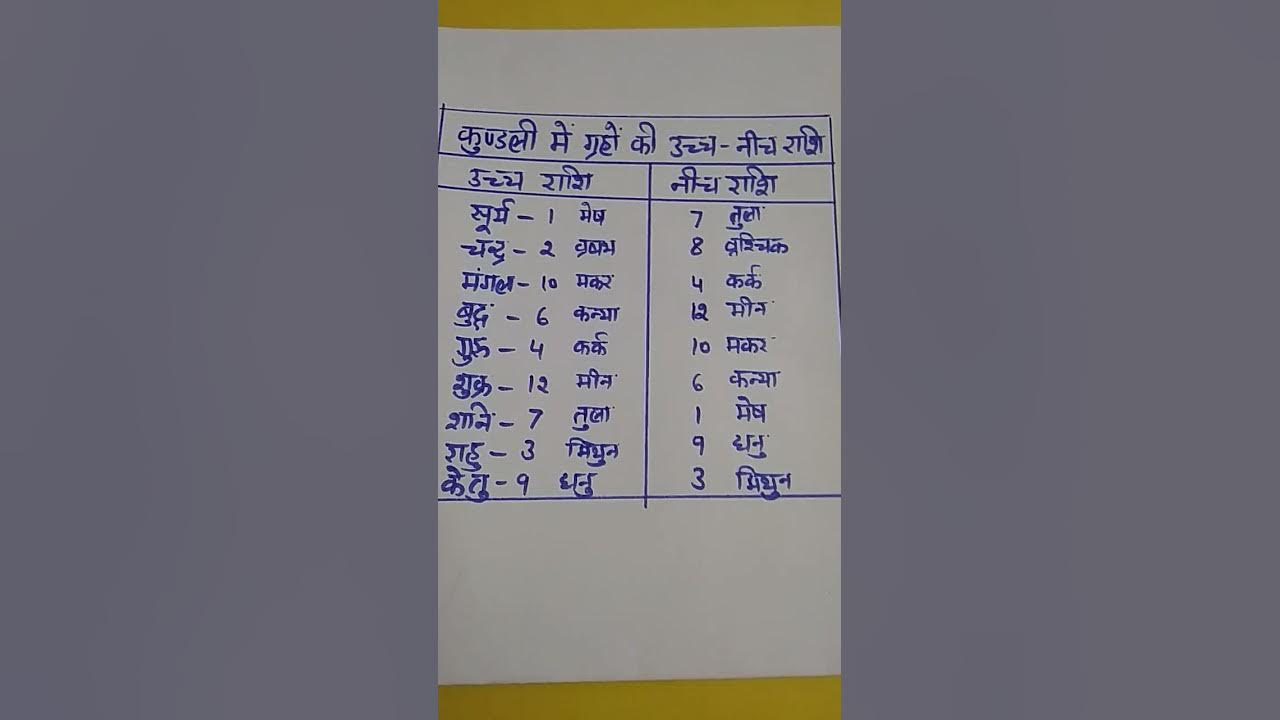 कुण्डली में ग्रहों की उच्च - नीच राशि
उच्च राशि नीच राशि
सूर्य - 1 मेष 7 तुला
चन्द्र - 2 व्रषभ 8 व्रश्चिक
मंगल - 10 मकर 4 कर्क
बुद्ध - 6 कन्या 12 मीन
गुरू - 4 कर्क 10 मकर
शुक्र - 12 मीन 6 कन्या
शनि - 7 तुला 1 मेष
राहु - 3 मिथुन 9 धनु
केतु - 9 धनु 3 मिथुन